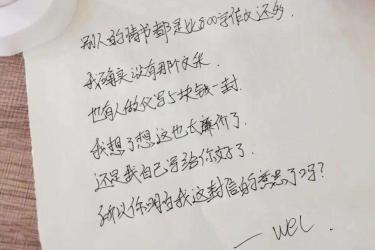 别人的情书都是比800字作文还多
我确实没有那个文采
也有人代写5块钱一封
我想了想这也太廉价了
还是我自己写给你好了
所以你明白我这封信的意思了吗?